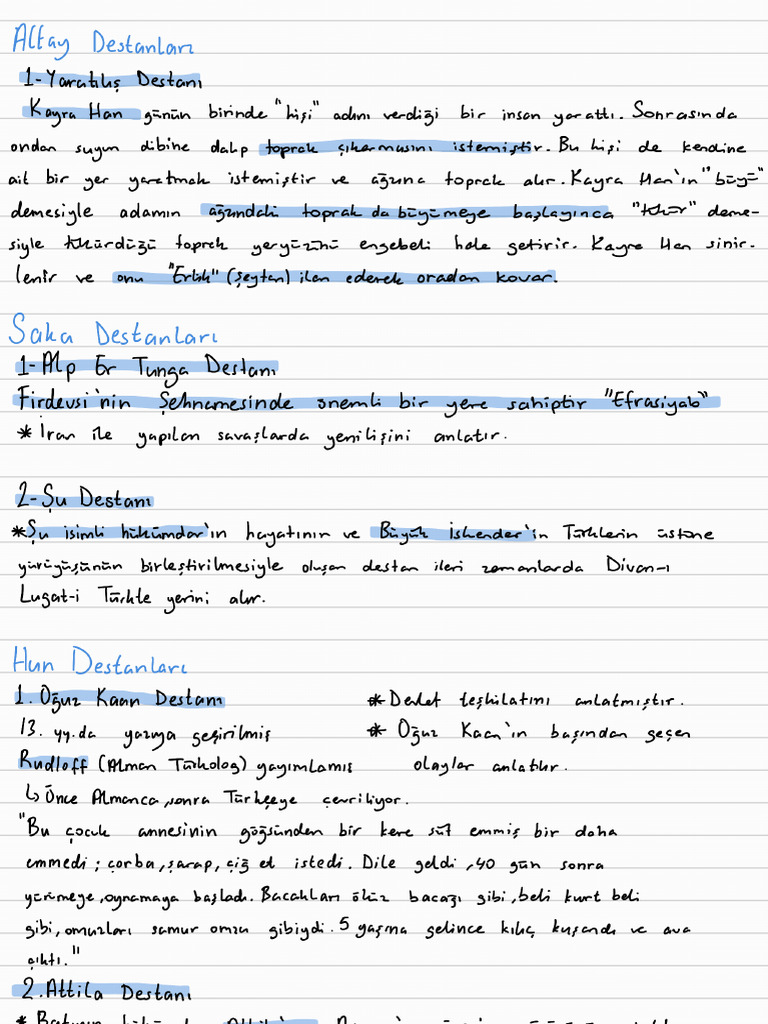 Altay Destanları
1-Yaratılış Destanı
Kayra Han günün birinde "kişi" adını verdiği bir insan yarattı. Sonrasında
ondan suyun dibine dalıp toprak çıkarmasını istemiştir. Bu kişi de kendine
ait bir yer yaratmak istemiştir ve ağzına toprak alır. Kayra Han'ın "büyü"
demesiyle adamın ağzındaki toprak da büyümeye başlayınca "tükür" deme-
siyle tükürdüğü toprak yeryüzünü engebeli hale getirir. Kayra Han sinir-
lenir ve onu "Erlik" (şeytan) ilan ederek oradan kovar.
Saka Destanları
1-Alp Er Tunga Destanı
Firdevsi'nin Şehnamesinde önemli bir yere sahiptir "Efrasiyab"
* İran ile yapılan savaşlarda yenilişini anlatır.
2-Şu Destanı
*Şu isimli hükümdar'ın hayatının ve Büyük İskender'in Türklerin üstüne
yürüyüşünün birleştirilmesiyle oluşan destan ileri zamanlarda Divan-ı
Lugat-i Türkte yerini alır.
Hun Destanları
1. Oğuz Kaan Destanı
13. yy.da yazıya geçirilmiş
Rudloff (Alman Türkolog) yayımlamış
↳ Önce Almanca, sonra Türkçeye çevriliyor.
* Devlet teşkilatını anlatmıştır.
* Oğuz Kaan'ın başından geçen
olaylar anlatılır.
"Bu çocuk annesinin göğsünden bir kere süt emmiş bir daha
emmedi; çorba, şarap, çiğ et istedi. Dile geldi, 40 gün sonra
yürümeye, oynamaya başladı. Bacakları öküz bacağı gibi, beli kurt beli
gibi, omuzları samur omzu gibiydi. 5 yaşına gelince kılıç kuşandı ve ava
çıktı."
2.Attila Destanı